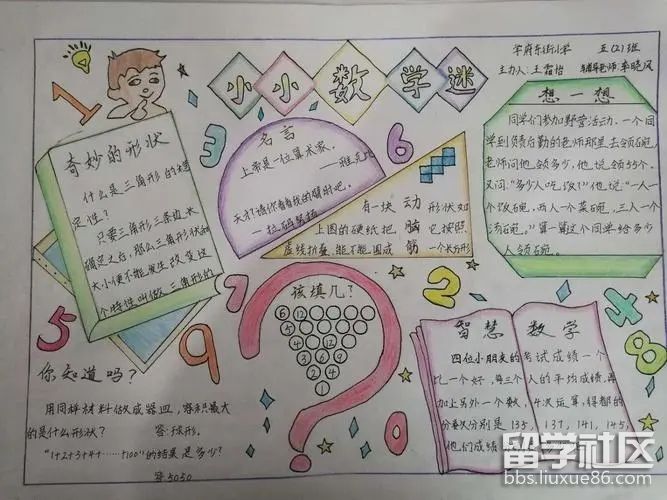 学府东街小学 五(2)班
主办人:王霜怡 辅导老师:李晓凤
小小数学迷
奇妙的形状
什么是三角形的稳
定性?
只要三角形三条边长
确定之后,那么三角形状和
大小便不能发生改变这
个特性叫做三角形的
名言
上帝是一位算术家.
—雅克比
一拉码努扬
动脑筋
有一块 形状如
上图的硬纸把 它按照
虚线折叠,能不能围成 一个长方形
想一想
同学们参加野营活动.一个同
学到负责后勤的老师那里去领碗.
老师问他领多少,他说领55个.
又问:"多少人吃饭?"他说:"一人一
个饭碗,两人一个菜碗,三人一个
汤碗."算一算这个同学给多少
人领碗.
该填几?
6 12
5
2 4
3 6 9
1 2 4
智慧数学
四位小朋友的考试成绩一个
比一个好,每三个人的平均成绩,再
加上另外一个数,4次运算,得都的
分数次分别是135,137,141,145,
他们成绩
你知道吗?
用同样材料做成器皿,容积最大
的是什么形状? 答:球形.
"1+2+3+4+……+100"的结果是多少?
答5050
1
3
6
5
9
7
2
4
8
留学社区
bbs.liuxue86.com